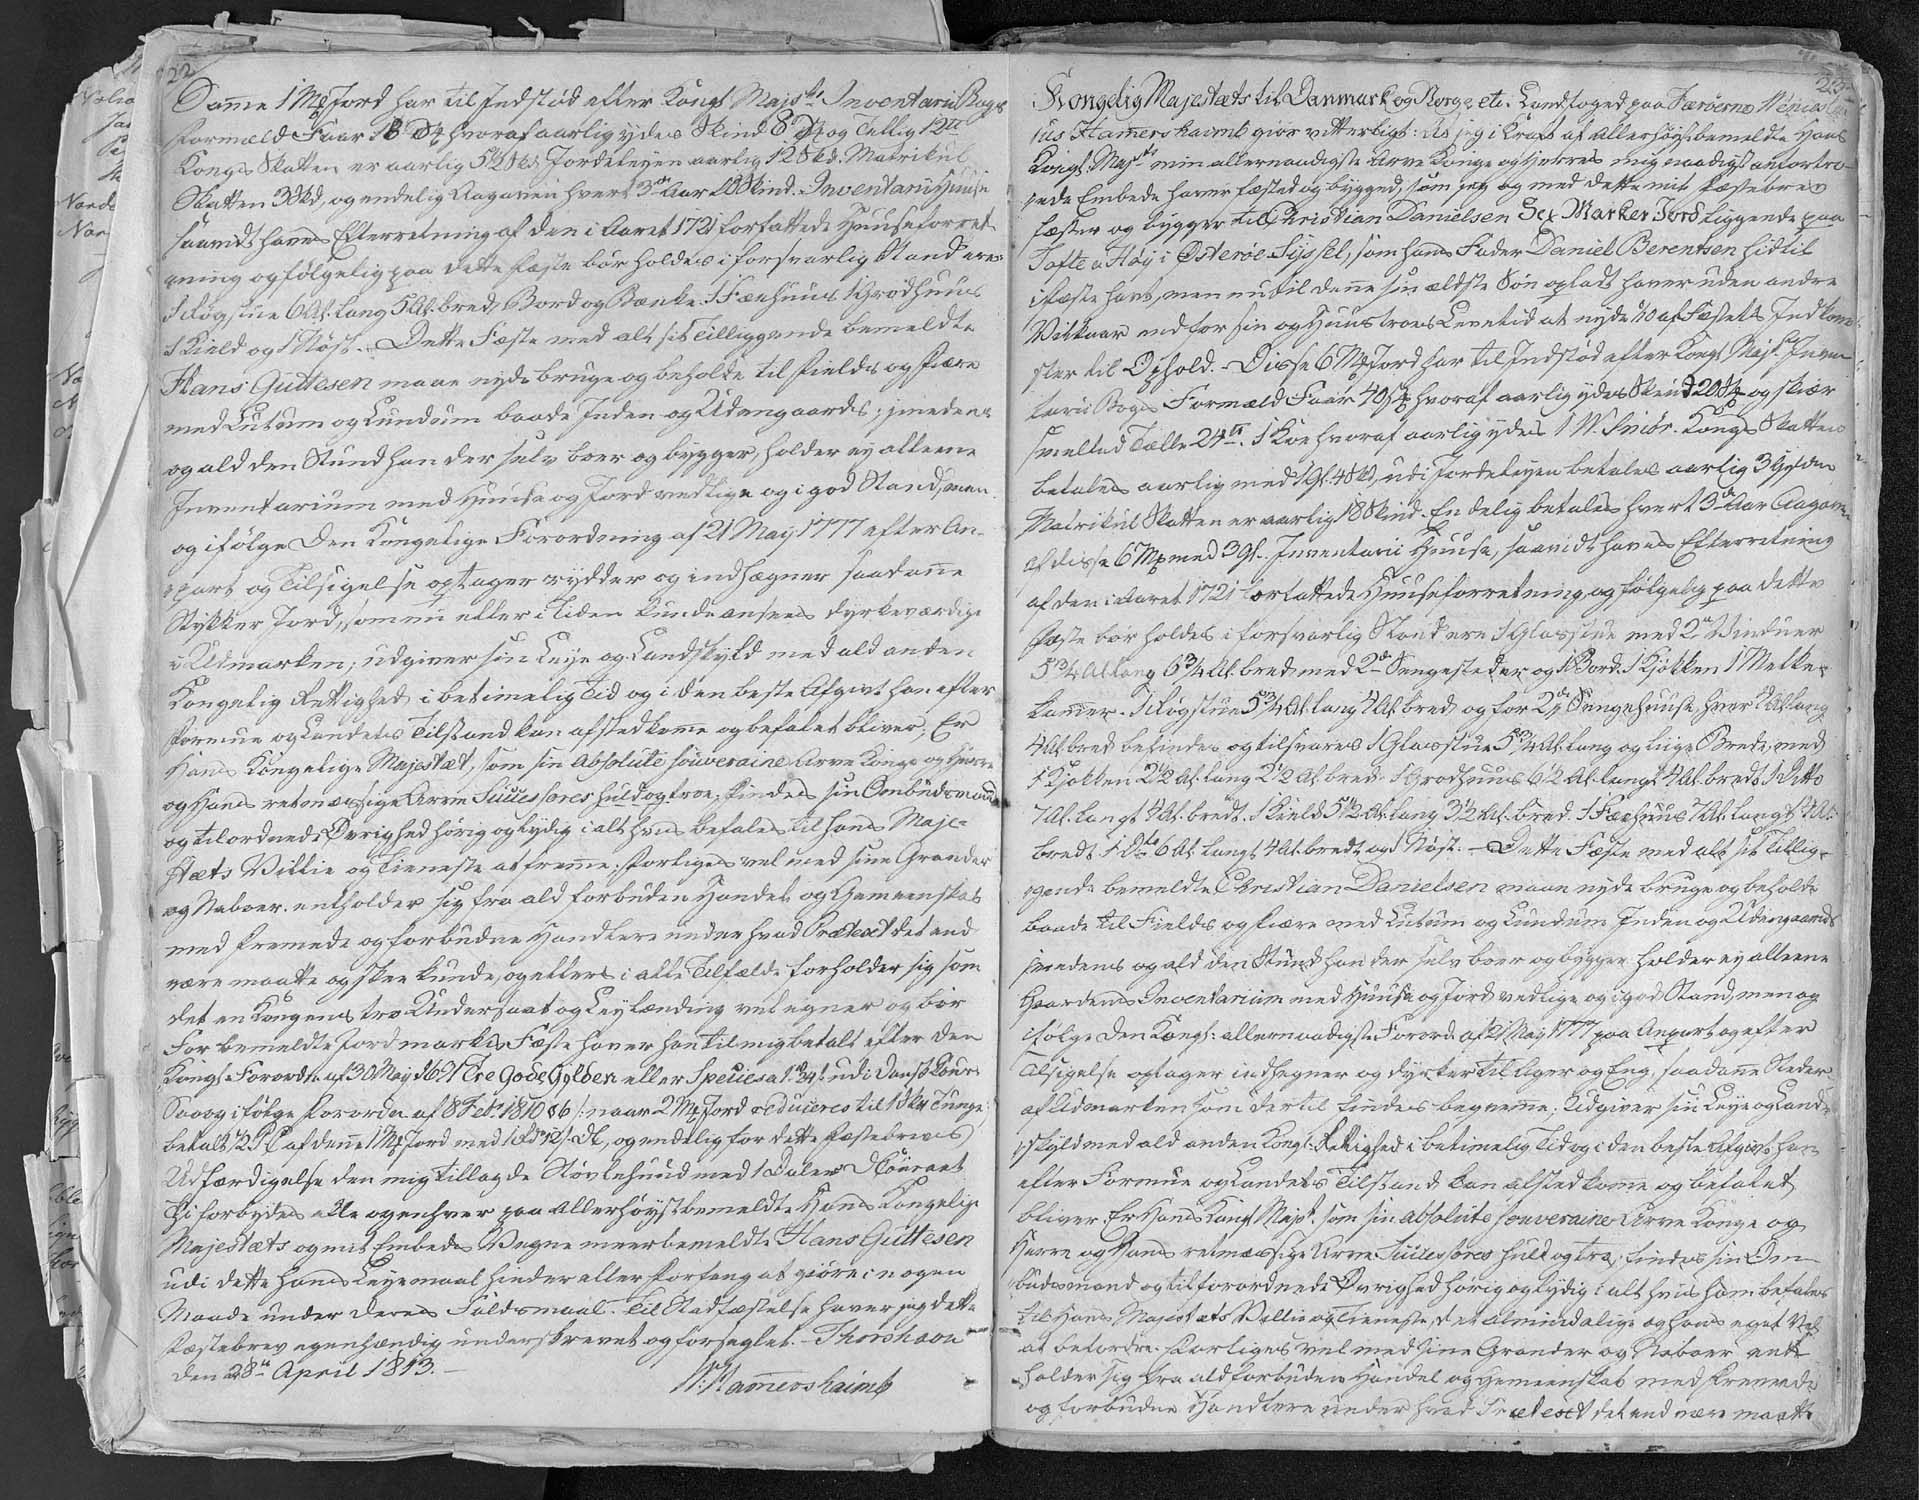 22
Denne 1 Mk Jord har til Indstød efter Kongl Majsts Inventarii Bogs
Formæld Faar 18 Stk hvoraf aarlig ydes Skind 8 Stk og Tællig 12 tt
Kongs Skatten er aarlig 5 1/2 Skd. Jordeleyen aarlig 12 Skd. Matrikul
Skatten 3 Skd, og endelig Aagaven hvert 3de Aar 10 Skind. Inventarii Huuse
saavidt haves Efterretning af den i Aaret 1721 forfattede Huuseforret
ning og følgelig paa dette Fæste bør holdes i forsvarlig Stand ere:
1 Røgstue 6 Al. lang 5 Al. bred, Bord og Bænke. 1 Fæehuus 1 Grødhuus
1 Kield og 1 Nøst. Dette Fæste med alt sit Tilliggende bemeldte
Hans Guttesen maae nyde bruge og beholde til Fields og Fiære
med Lutum og Lundum baade Inden og Udengaards; imedens
og ald den Stund han der selv boer og bygger, holder ey alleene
Inventarium med Huuse og Jord vedlige og i god Stand, men
og ifølge Den Kongelige Forordning af 21 May 1777 efter An-
part og Tilsigelse optager rydder og indhægner saadanne
Stykker Jord, som nu eller i Tiden kunde ansees dyrkeværdige
i Udmarken; udgiver sin Leye og Landskyld med ald anden
Kongelig Rettighed i betimelig Tid og i den beste Afgivt han efter
Formue og Landets Tilstand kan afsted komme og befalet bliver; Er
Hans Kongelige Majestæt, som sin Absolute souveraine Arve Konge og Herre
og Hans retmæssige Arve Successores huld og troe; Findes sin Ombudsmand
og tilordnede Øvrighed hørig og lydig i alt hvis befales til hans Maje-
stæts Villie og Tieneste at fremme; forliges vel med sine Grander
og Naboer. entholder sig fra ald forbuden Handel og Gemeenskab
med fremmede og forbudne Handlere under hvad Prætext det end
være maatte og skee kunde, og ellers i alle Tilfælde forholder sig som
det en Kongens troe Undersaat og Leylænding vel egner og bør
For bemeldte Jord markes Fæste haver han til mig betalt efter den
Kongl. Forordn. af 30 May 1691 Tre Gode Gylden eller Species
udi Dansk Cour.
Saa og ifølge Forordn. af 8 Feb. 1810 § 6 /: naar 2 Mk Jord reduceres til 1 Skp Tunge
betalt af denne 1 Mk Jord med og endelig for dette Fæstebrevs
Udfærdigelse den mig tillagde Støvlehuud med 1 Daler D Courant
Thi forbydes alle og enhver paa Allerhøystbemeldte Hans Kongelige
Majestæts og mit Embeds Vegne meerbemeldte Hans Guttesen
udi dette hans Leyemaal hinder eller Forfang at giøre i nogen
Maade under deres Faldsmaal. Til Stadfæstelse haver jeg dette
Fæstebrev egenhændig underskrevet og forseglet. Thorshavn
den 28de April 1813.
W. Hammershaimb
23
Kongelig Majestæts til Danmark og Norge etc. Landfoged paa Færøerne Wenceslaus
Hammershaimb giør vitterligt: At jeg i Kraft af Allerhøystbemeldte Hans
Kongl. Majsts min allernaadigste Arve Konge og Herres mig naadigst anfortro-
ede Embede haver fæstet og bygget, som jeg og med dette mit Fæstebrev
fæster og bygger til Christian Danielsen Sex Marker Jord liggende paa
Tofte a Høy i Østerøe Syssel, som hans Fader Daniel Berentsen hidtil
i Fæste havt, men nu til denne sin ældste Søn opladt haver uden andre
Vilkaar end for sin og Huustroes Levetid at nyde af Fæstets Indkom
ster til Ophold. Disse 6 Mk Jord har til Indstød efter Kongl Majst Inven
tarii Bogs Formæld Faar 40 Stk hvoraf aarlig ydes Skind 20 Stk og skiær
smelted Tælle 24 tt. 1 Koe hvoraf aarlig ydes 1 W. Smør. Kongs Skatten
betales aarlig med 1 Gl. 4 Skd, udi Jordeleyen betales aarlig 3 Gylden
Matrikul Skatten er aarlig 18 Skind. Endelig betales hvert 3de Aar Aagaven
af disse 6 Mk med 3 Gl. Inventarii Huuse, saavidt haves Efterretning
af den i Aaret 1721 forfattede Huuseforretning og følgelig paa dette
Fæste bør holdes i forsvarlig Stand ere 1 Glasstue med 2de Vinduer
5 3/4 Al lang 6 3/4 Al. bred med 2de Sengesteder og 1 Bord. 1 Kjøkken 1 Melke-
kammer. 1 Røgstue 5 3/4 Al. lang 4 Al. bred og for 2de Sengehuuse, hver Al. lang
4 Al. bred befindes og tilsvares 1 Glasstue 5 3/4 Al. lang og liige Brede, med
1 Kjøkken 2 1/2 Al. lang 2 1/2 Al. bred. 1 Grødhuus 6 1/2 Al. langt 4 Al. bredt 1 Ditto
7 Al. langt 4 Al. bredt. 1 Kield 5 1/2 Al. lang 3 1/2 Al. bred. 1 Fæehuus 7 Al. langt 4 Al.
bredt 1 Dto 6 Al. langt 4 Al. bredt og 1 Nøst. - Dette Fæste med alt sit Tillig-
gende bemeldte Christian Danielsen maae nyde bruge og beholde
baade til Fields og Fiære med Lutum og Lundum Inden og Udengaards
imedens og ald den Stund han der selv boer og bygger holder ey alleene
Gaardens Inventarium med Huuse og Jord vedlige og i god Stand, men og
ifølge Den Kongl: allernaadigste Forord. af 21 May 1777 paa Anpart og efter
Tilsigelse optager indhegner og dyrker til Ager og Eng, saadanne Steder
af Udmarken som dertil findes beqvemme. Udgiver sin Leye og Land-
skyld med ald anden Kongl. Rettighed i betimelig Tid og i den beste Afgivt han
efter Formue og Landets Tilstand kan afsted komme og befalet
bliver. Er Hans Kongl Majst. som sin absolute souveraine Arve Konge og
Herre og Hans retmæssige Arve Successores huld og troe; findes sin Om-
budsmand og tilforordnede Øvrighed hørig og lydig i alt hvis ham befales
til Hans Majestæts Villie og Tieneste, det almindelige og hans eget Vel
at befordre. Forliges vel med sine Grander og Naboer ent-
holder sig fra ald forbuden Handel og Gemeenskab med fremmede
og forbudne Handlere under hvad Prætext det end være maatte